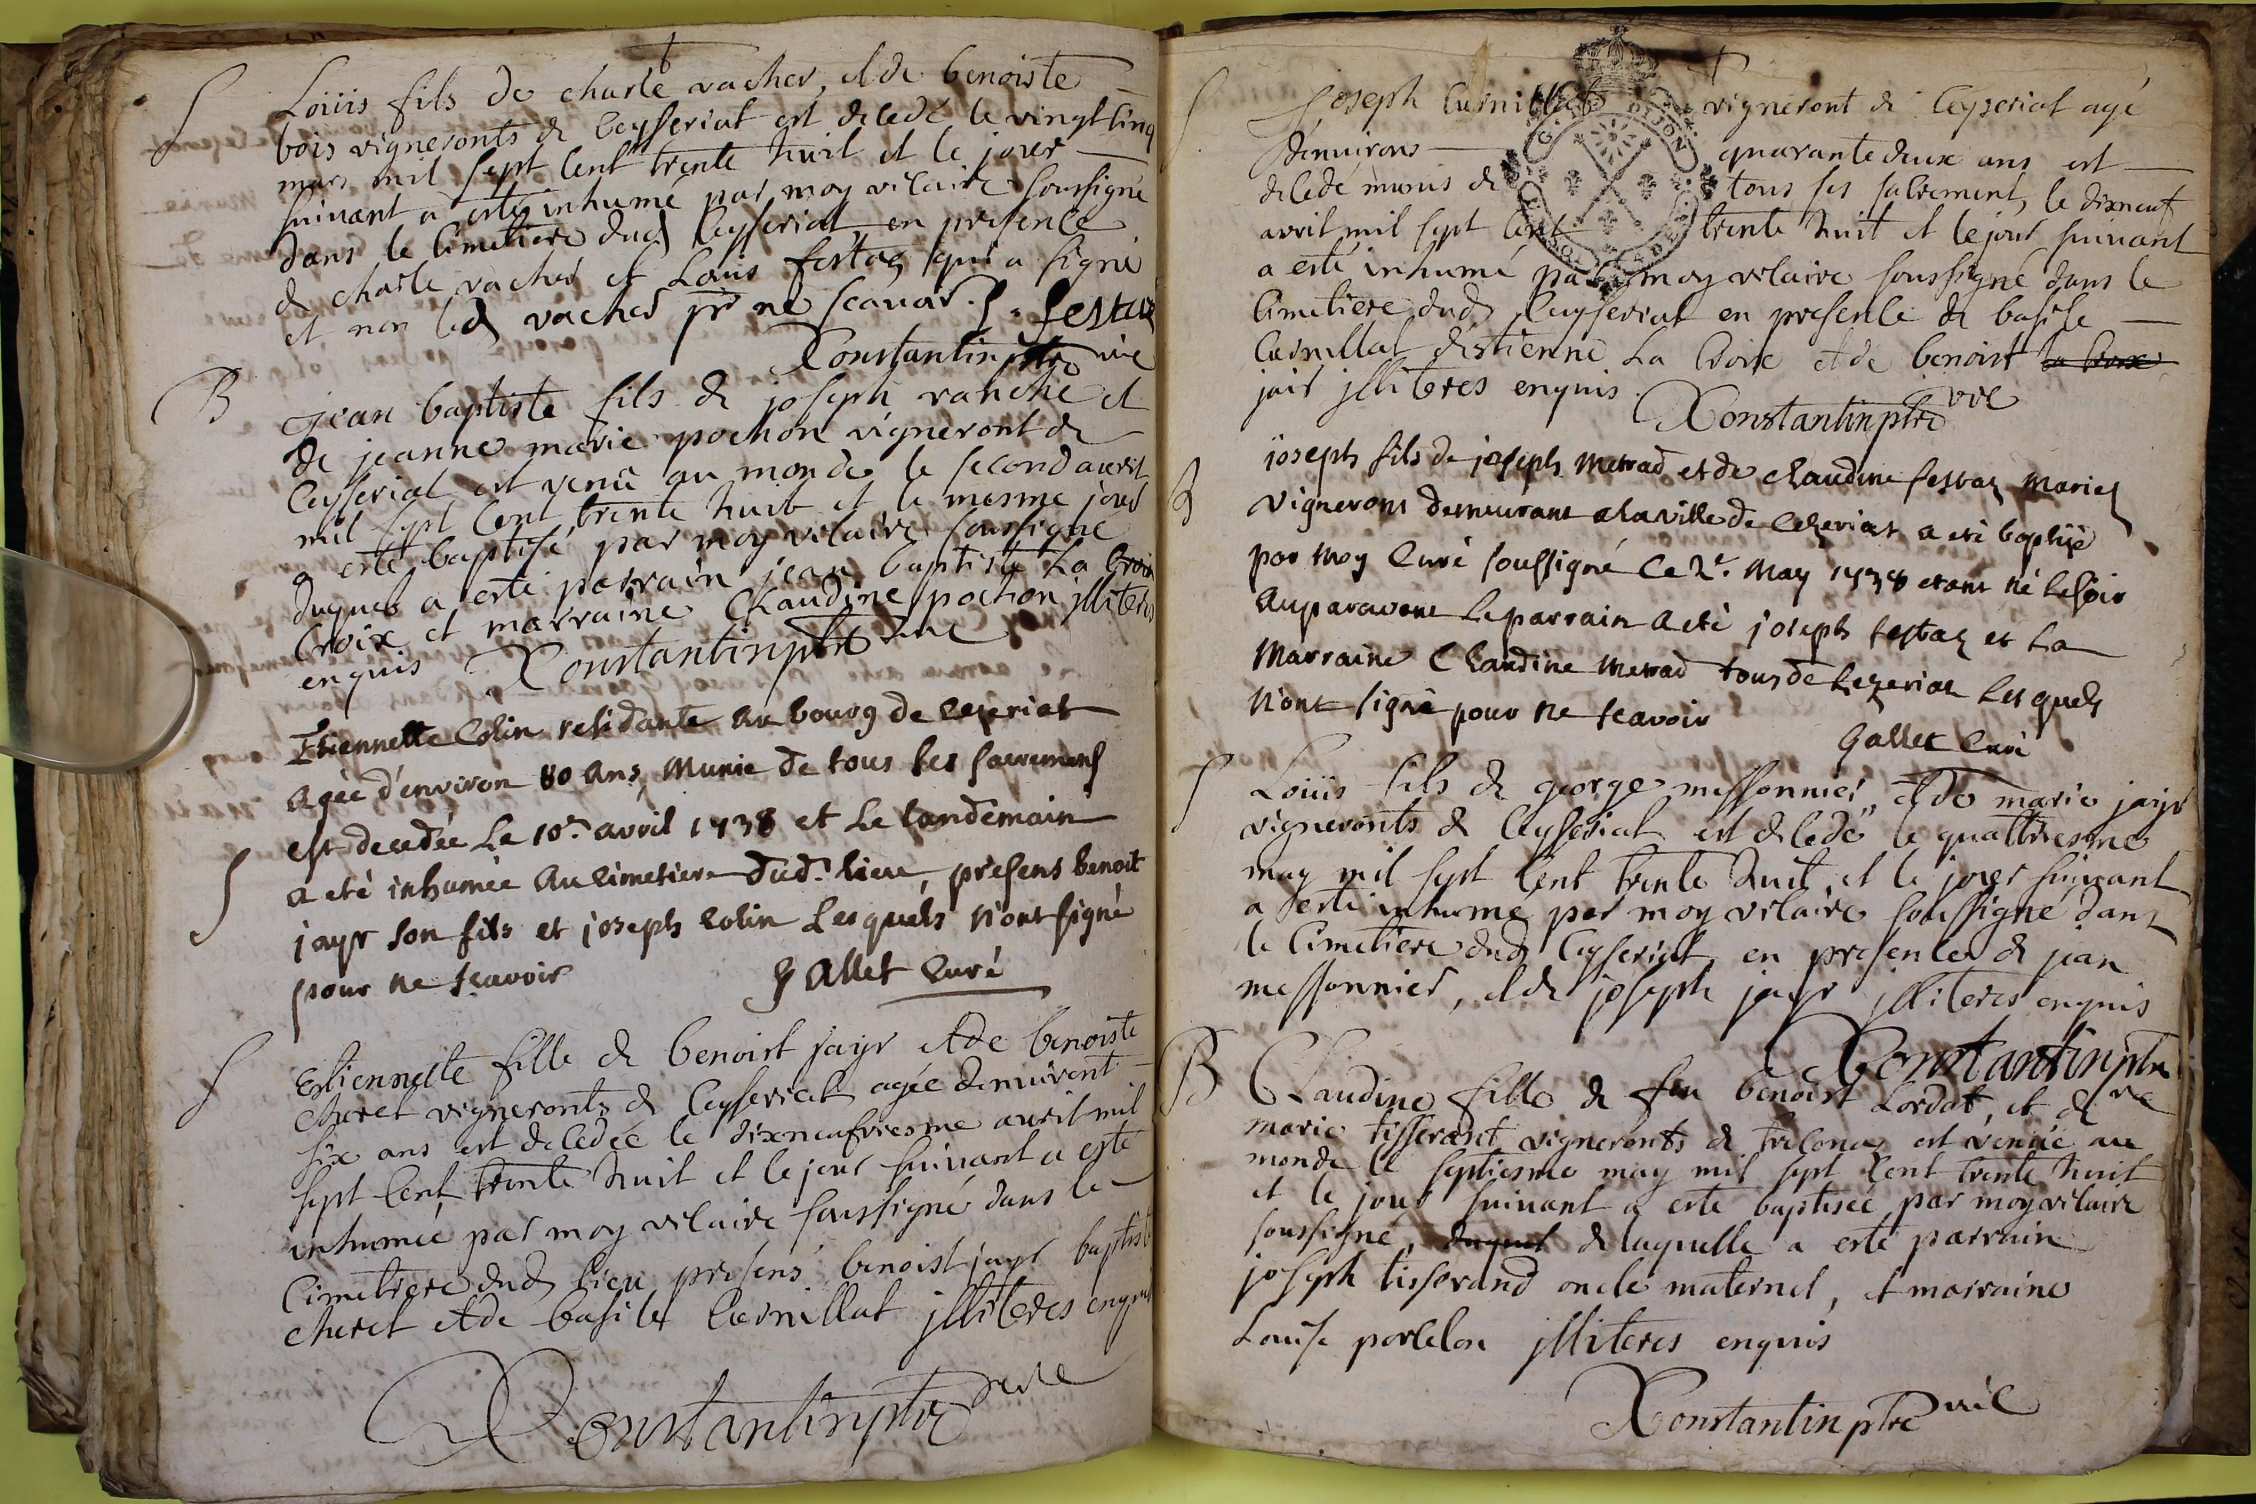 S
Loüis fils de charle vacher, et de benoiste
bois vigneronts de Ceyseriat est decedé le vingt cinq
mars mil sept cent trente huit et le jour
suivant a esté inhumé par moy vicaire soussigné
dans le Cimetiere dud Ceyseriat en presence
de charle vacher et Louis festaz qui a signé
et non led vacher pr ne scavoir. L. festaz
Constantin ptre vic
B
jean baptiste fils de joseph vanché et
de jeanne marie pochon vigneront de
Ceyseriat est venu au monde le second avril
mil sept cent trente huit et le mesme jour
a esté baptisé par moy vicaire soussigné
duquel a esté parrain jean baptiste La Croix
Croix et marraine Claudine pochon jlliteres
enquis Constantin ptre vic
Etiennette Colin residante au bourg de Cezeriat
agée d'environ 80 ans, Munie de tous ses sacremens
est decedée Le 10e avril 1738 et Le landemain
S
a eté inhumée au Cimetiere dud. lieu, presens benoit
jayr son fils et joseph Colin Lesquels n'ont signé
pour ne scavoir Gallet Curé
S
Estiennette fille de benoist jayr et de benoiste
cheret vigneronts de Ceyseriat agée denviront
six ans est decedée le dixneufviesme avril mil
sept cent trente huit et le jour suivant a esté
inhumée par moy vicaire soussigné dans le
Cimetiere dud lieu presens benoist jayr baptiste
cheret et de basile Curnillat jlliteres enquis
Constantin ptre vic
S
Joseph Curnillat vigneront de Ceyseriat agé
denvirons quarante deux ans est
decedé munis de tous ses sacrements le dixneuf
avril mil sept cent trente huit et le jour suivant
a esté inhumé par moy vicaire soussigné dans le
Cimetiere dud Ceyseriat en presence de basile
Curnillat d'estienne La Croix et de benoist la Croix
jair jlliteres enquis. Constantin ptre vic
B
joseph fils de joseph Metrad et de Claudine festaz Mariez
Vignerons demeurant a la ville de Cezeriat a eté baptisé
par Moy Curé soussigné Ce 2e. May 1738 etant né Le soir
auparavant Le parrain a eté joseph festaz et La
Marraine Claudine Metrad tous de Cezeriat Lesquels
n'ont signé pour ne scavoir
Gallet Curé
S
Loüis fils de george messonnier, et de marie jayr
vigneronts de Ceyseriat est decedé le quattriesme
may mil sept cent trente huit, et le jour suivant
a esté inhumé par moy vicaire soussigné dans
le Cimetiere dud Ceyseriat en presence de jean
messonnier, et de joseph jayr jlliteres enquis
Constantin ptre
vic
B
Claudine fille de feu benoist Lordat, et de
marie tisserant vigneronts de treconaz est venüe au
monde le septiesme may mil sept cent trente huit
et le jour suivant a esté baptisée par moy vicaire
soussigné, duquel de laquelle a esté parrain
joseph tisserand oncle maternel, et marraine
Louise porcelon jlliteres enquis
Constantin ptre vic